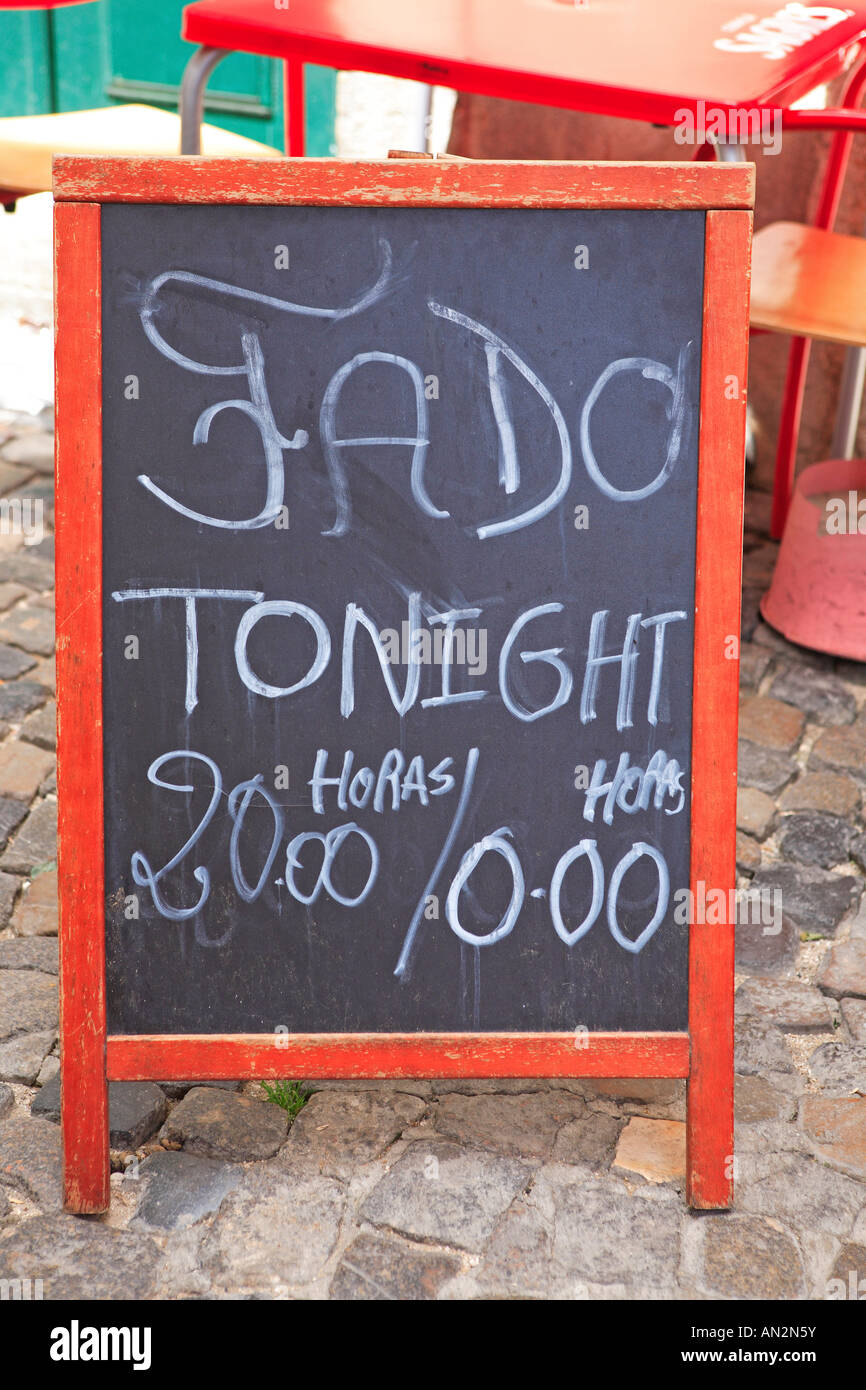 SAGRES
FADO
TONIGHT
20.00 HORAS / 0.00 HORAS
alamy
Image ID: AN2N5Y
www.alamy.com